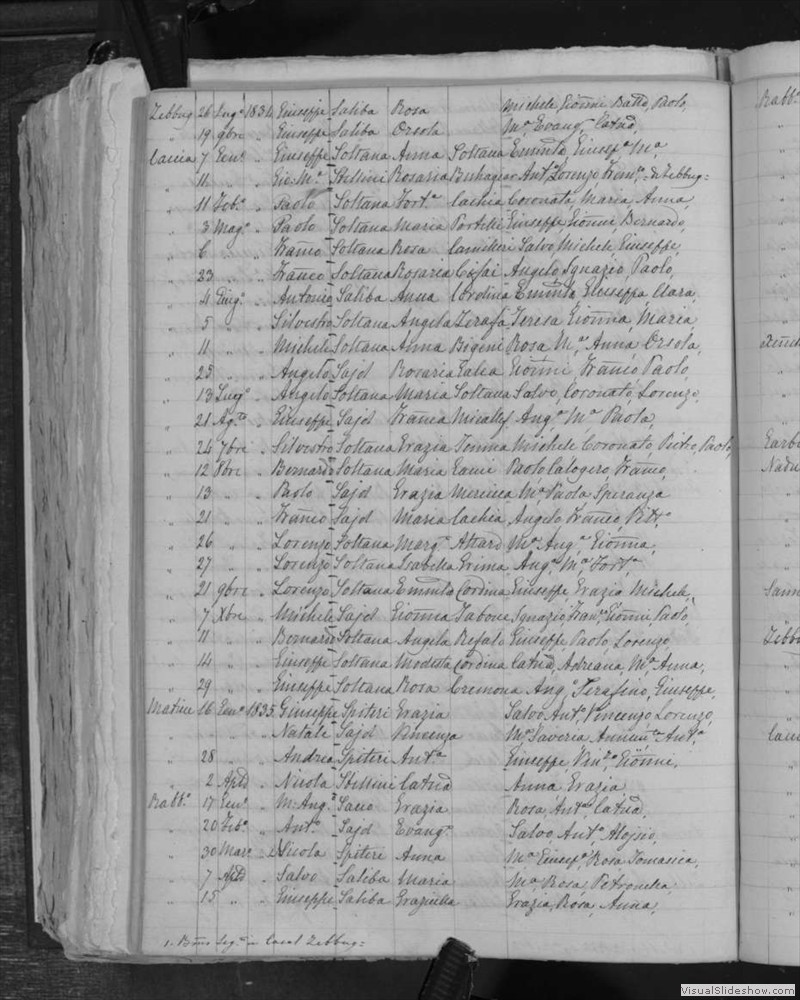 Zebbug 26 Lug.o 1834 Giuseppe Saliba Rosa Michele, Gionni Batta, Paolo,
" 19 9bre " Giuseppe Saliba Orsola Ma, Evang.a Catna,
Caccia 7 Genn.o " Giuseppe Soltana Anna Soltana Gius.a Ma
" 11 " " Gio: Ma Stellini Rosaria Ant.o Lorenzo Zebbug=
" 11 Feb.o " Paolo Soltana Fort.a Cachia Coronata, Maria, Anna,
" 3 Mag.o " Paolo Soltana Maria Portelli Giuseppe, Gionni, Bernardo,
" 6 " " Franco Soltana Rosa Camilleri Salvo, Michele, Giuseppe,
" 23 " " Franco Soltana Rosaria Angelo, Ignazio, Paolo,
" 4 Giug.o " Antonio Saliba Anna Cordina Giuseppa, Clara,
" 5 " " Silvestro Soltana Angela Zerafa Teresa, Gionna, Maria
" 11 " " Michele Soltana Anna Bigeni Rosa, Ma Anna, Orsola,
" 25 " " Angelo Sajd Rosaria Galea Gionni Franco Paolo,
" 13 Lug.o " Angelo Soltana Maria Soltana Salvo, Coronato, Lorenzo,
" 21 Ag.to " Giuseppe Sajd Franca Micallef Ang.a Ma Paola,
" 24 7bre " Silvestro Soltana Grazia Michele Coronato, Pietro, Paolo,
" 12 8bre " Bernardo Soltana Maria Gauci Paolo Calogero, Franco,
" 13 " " Paolo Sajd Grazia Mercieca Ma Paola Speranza
" 21 " " Franco Sajd Maria Cachia Angelo, Franco,
" 26 " " Lorenzo Soltana Marg.a Attard Ma Ang.a Gionna,
" 27 " " Lorenzo Soltana Isabella Grima Ang.a Ma Fort.a
" 21 9bre " Lorenzo Soltana Cordina Giuseppe, Grazia Michele,
" 7 Xbre " Michele Sajd Gionna Tabone Ignazio, Gionni, Paolo,
" 11 " " Bernardo Soltana Angela Refalo Giuseppe, Paolo, Lorenzo,
" 14 " " Giuseppe Soltana Modesta Cordina Catna, Adreana, Ma Anna,
" 29 " " Giuseppe Soltana Rosa Cremona Ang.o Serafino, Giuseppe,
Matrice 16 Genn.o 1835 Giuseppe Spiteri Grazia Salvo Ant.o, Vincenzo, Lorenzo,
" " " " Natale Sajd Vincenza Ma Saveria, Ant.a
" 28 " " Andrea Spiteri Ant.a Giuseppe, Gionni,
" 2 Aple " Nicola Stellini Catna Anna, Grazia,
Rabb.o 17 Genn.o " M: Ang.o Grazia Rosa, Ant.a, Catna,
" 20 Feb.o " Ant.o Sajd Evang.a Salvo, Ant.o, Alojsio,
" 30 Mar.o " Nicola Spiteri Anna Ma Gius.a, Rosa, Tomasica,
" 7 Aple " Salvo Saliba Maria Ma Rosa, Petronella
" 15 " " Giuseppe Saliba Graziella Grazia, Rosa, Anna,
in Casal Zebbug=
Rabb.o
Nadur
VisualSlideshow.com